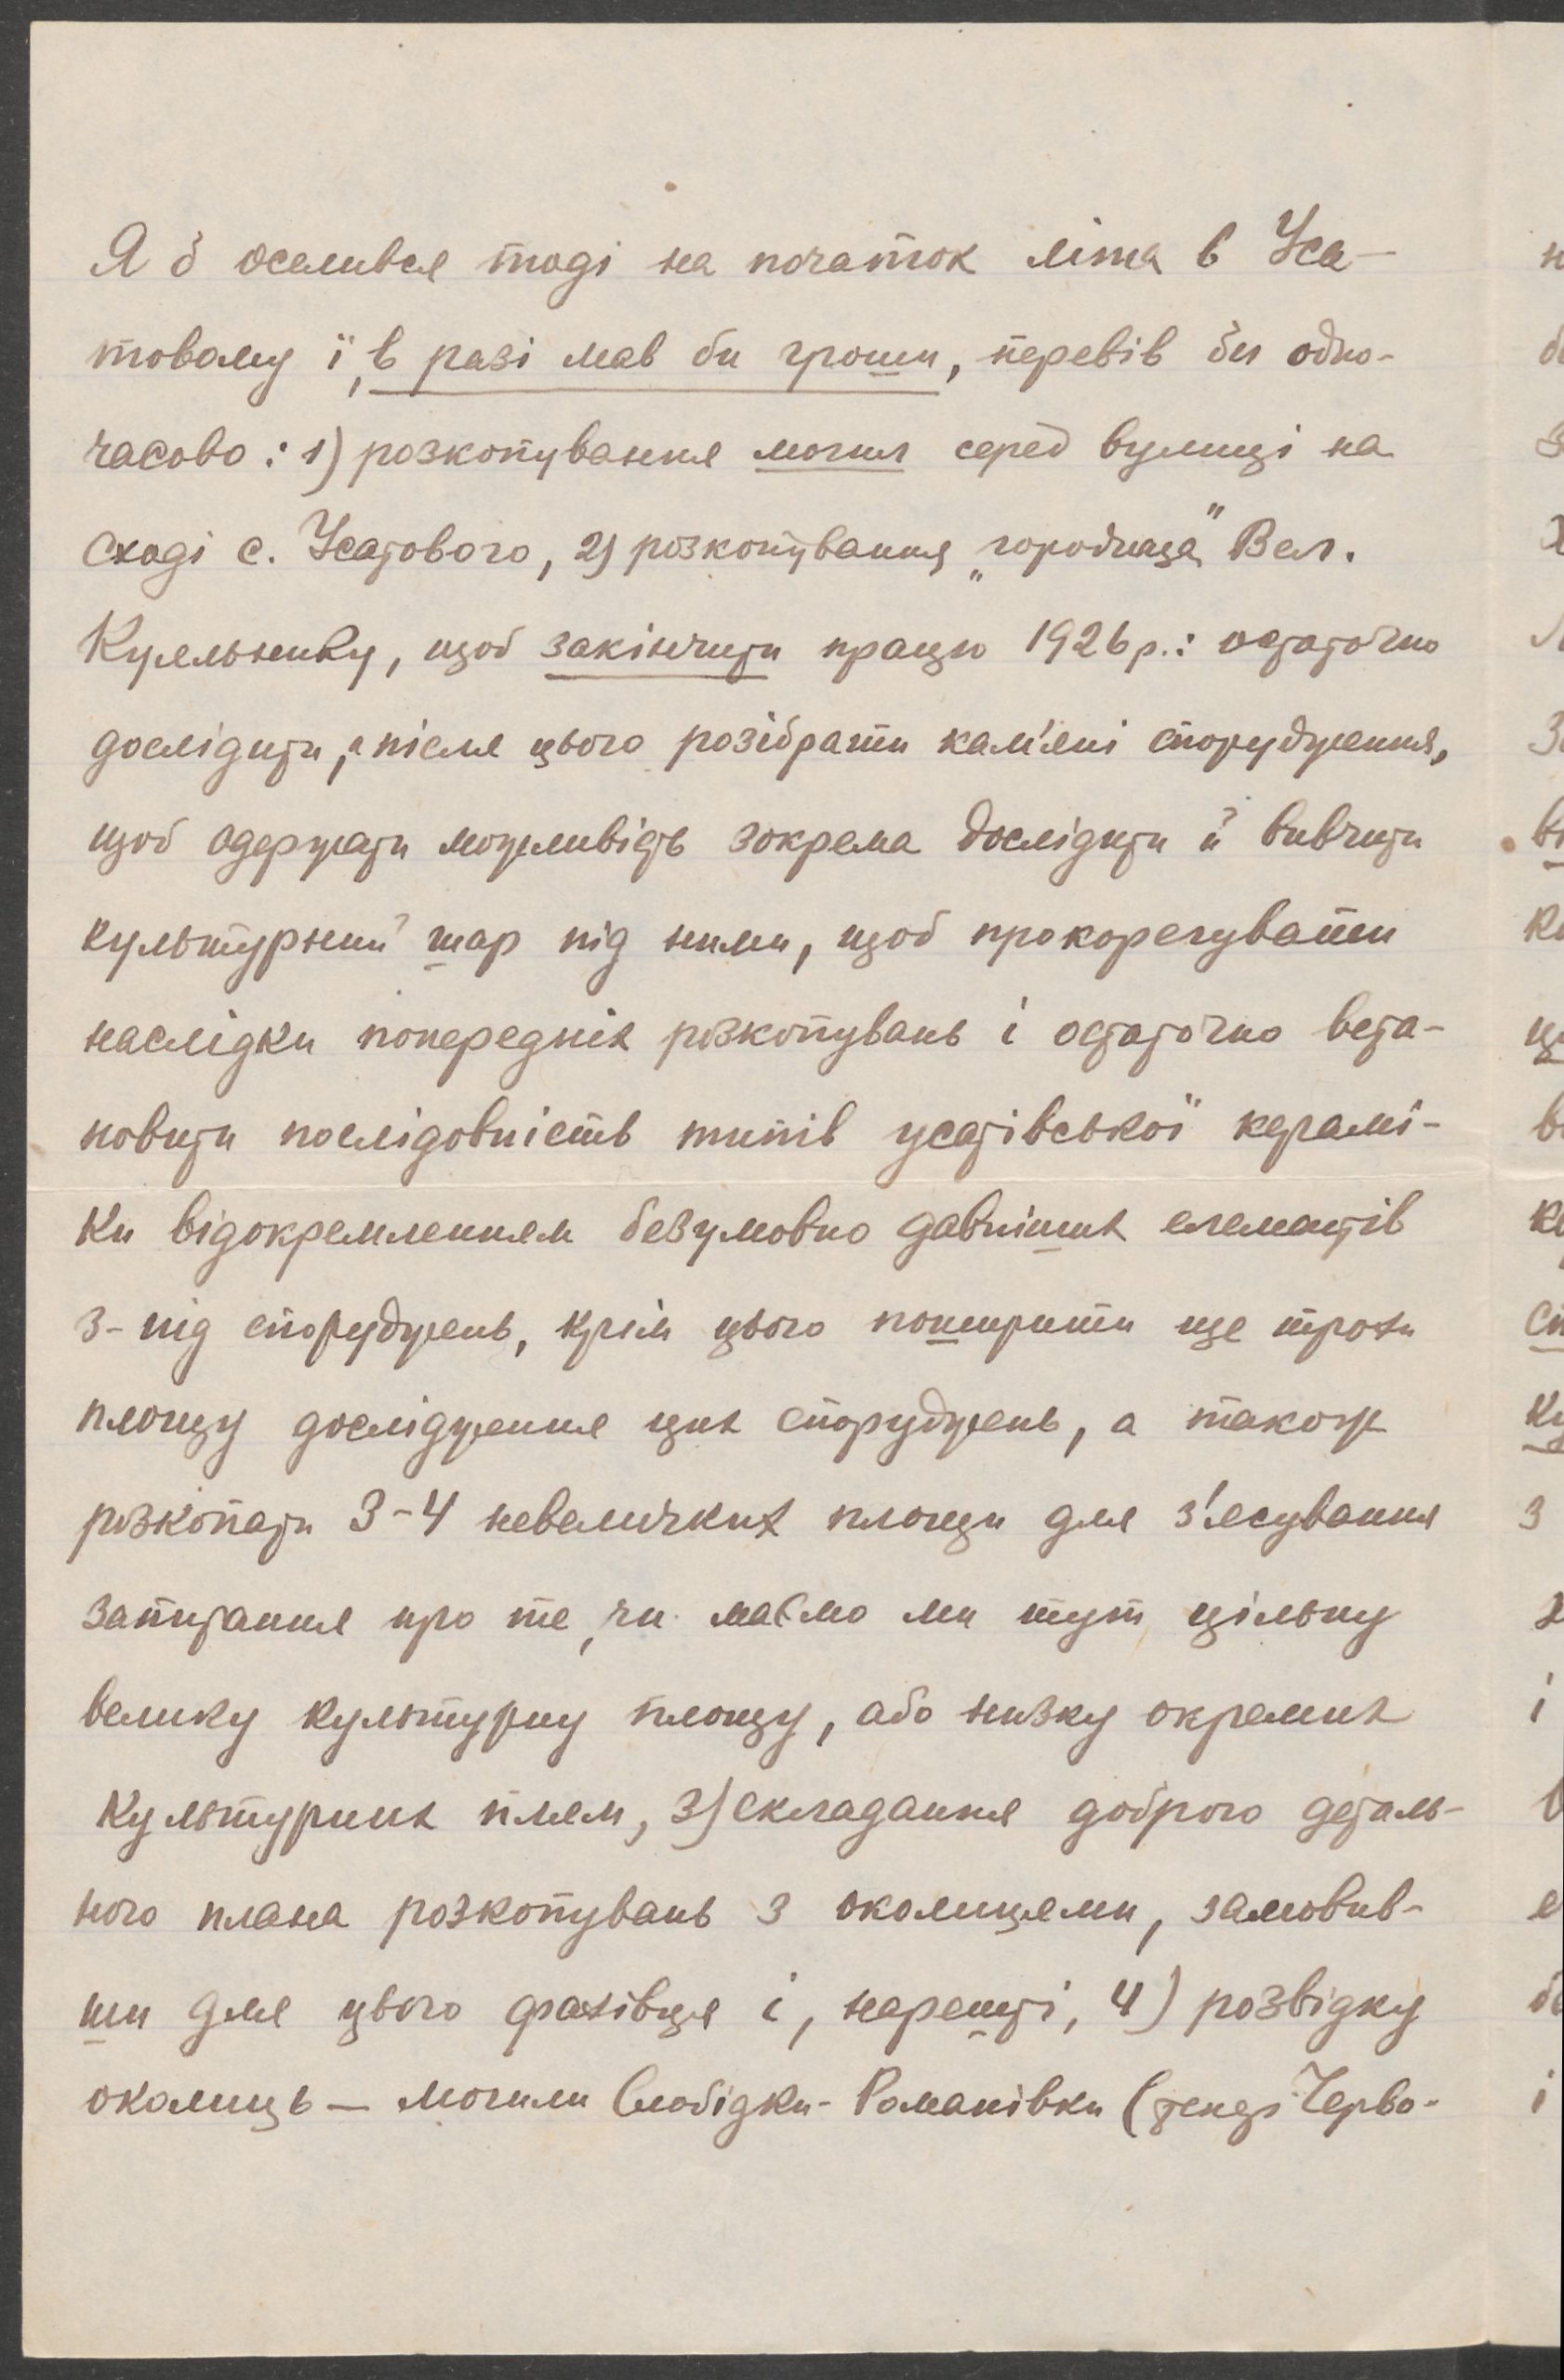 Я б оселився тоді на початок літа в Уса-
товому і, в разі мав би гроши, перевів би одно-
часово: 1) розкопування могил серед вулиці на
сході с. Усатового, 2) розкопування „городища" Вел.
Куяльнику, щоб закінчити працю 1926 р.: остаточно
дослідити, а після цього розібрати кам'яні спорудження,
щоб одержати можливість зокрема дослідити й вивчити
культурний шар під ними, щоб прокорегувати
наслідки попередніх розкопувань і остаточно вста-
новити послідовність типів усатівської керамі-
ки відокремленням безумовно давніших елементів
з-під споруджень, крім цього поширити ще трохи
площу дослідження цих споруджень, а також
розкопати 3-4 невеличких площи для з'ясування
запитання про те, чи маємо ми тут цільну
велику культурну площу, або низку окремих
культурних плям, 3) складання доброго деталь-
ного плана розкопувань з околицями, замовив-
ши для цього фахівця і, нарешті, 4) розвідку
околиць — могили Слобідки-Романівки (кінця Черво-